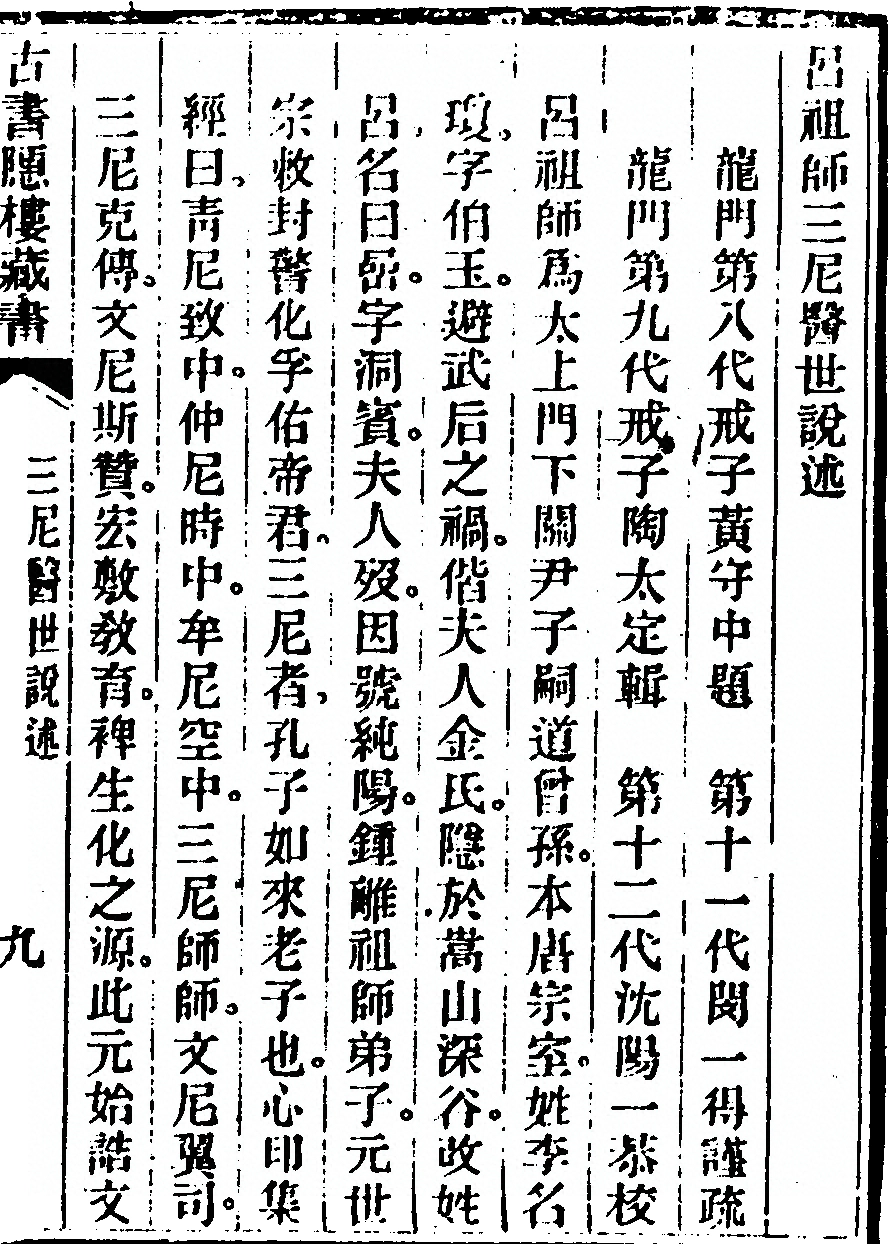 呂祖師三尼醫世說述
龍門第八代戒子黃守中題　第十一代閔一得謹疏
龍門第九代戒子陶太定輯　第十二代沈陽一恭校
呂祖師爲太上門下關尹子嗣道曾孫。本唐宗室。姓李名
瓊、字伯玉。避武后之禍。偕夫人金氏。隱於嵩山深谷。改姓
呂、名曰嵒。字洞賓。夫人歿。因號純陽。鍾離祖師弟子。元世
宗敕封警化孚佑帝君。三尼者、孔子如來老子也。心印集
經曰、青尼致中。仲尼時中。牟尼空中。三尼師師。文尼翼司。
三尼克傳。文尼斯贊。宏敷敎育。裨生化之源。此元始誥文
古書隱樓藏書
三尼醫世說述
九